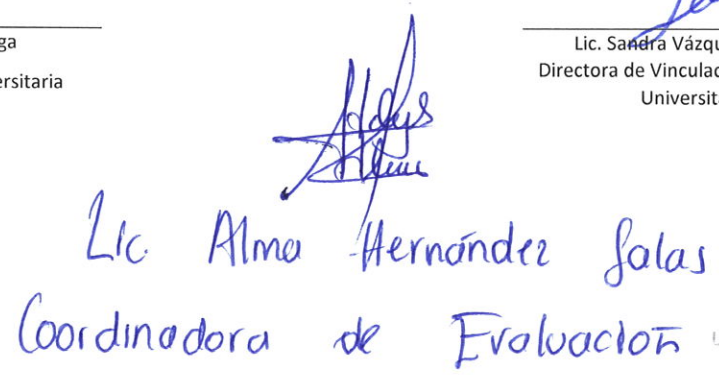 ga
ersitaria
Lic. Sandra Vázqu
Directora de Vinculac
Universita
Lic. Alma Hernández Salas
Coordinadora de Evaluación